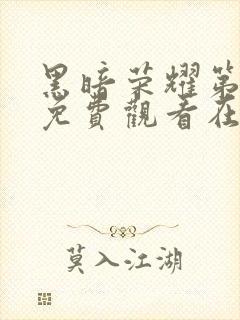 黑暗荣耀第
免費觀看在
莫入江湖